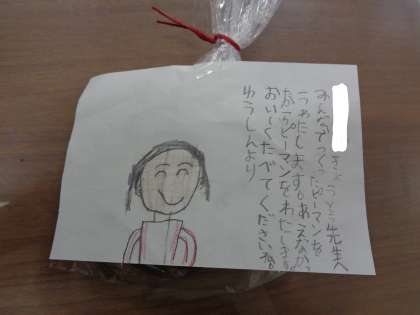 きょうとう先生へ
みんなでつくったピーマンを
1つわたします。あえなかっ
たからピーマンをわたします。
おいしくたべてくださいね。
ゆうしんより